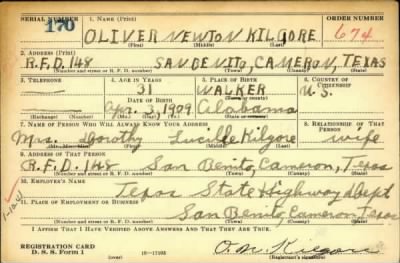 SERIAL NUMBER 1. NAME (Print) ORDER NUMBER
170 OLIVER NEWTON KILGORE 674
(First) (Middle) (Last)
2. ADDRESS (Print)
R.F.D. 148 SAN BENITO, CAMERON, TEXAS
(Number and street or R. F. D. number) (Town) (County) (State)
3. TELEPHONE 4. AGE IN YEARS 5. PLACE OF BIRTH 6. COUNTRY OF CITIZENSHIP
31 WALKER U.S.
DATE OF BIRTH (Town or county)
Apr. 3, 1909 Alabama
(Exchange) (Number) (Mo.) (Day) (Yr.) (State or country)
7. NAME OF PERSON WHO WILL ALWAYS KNOW YOUR ADDRESS 8. RELATIONSHIP OF THAT PERSON
Mrs. Dorothy Lucille Kilgore wife
(Mr., Mrs., Miss) (First) (Middle) (Last)
9. ADDRESS OF THAT PERSON
R.F.D. 148 San Benito, Cameron, Texas
(Number and street or R. F. D. number) (Town) (County) (State)
10. EMPLOYER'S NAME
Texas State Highway Dept
11. PLACE OF EMPLOYMENT OR BUSINESS
San Benito, Cameron, Texas
(Number and street or R. F. D. number) (Town) (County) (State)
I AFFIRM THAT I HAVE VERIFIED ABOVE ANSWERS AND THAT THEY ARE TRUE.
REGISTRATION CARD
D. S. S. Form 1 (over) 16—17105 O. N. Kilgore
(Registrant's signature)